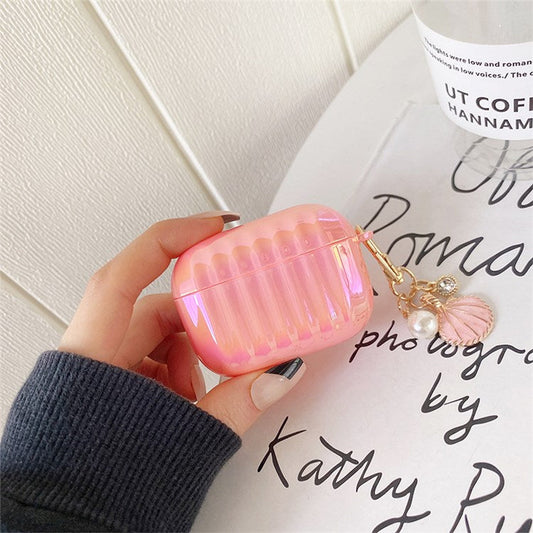 lights were low and roman
speaking in low voices./ The c
UT COFF
HANNAM
of
Romant
photogra
by
Kathy Ry